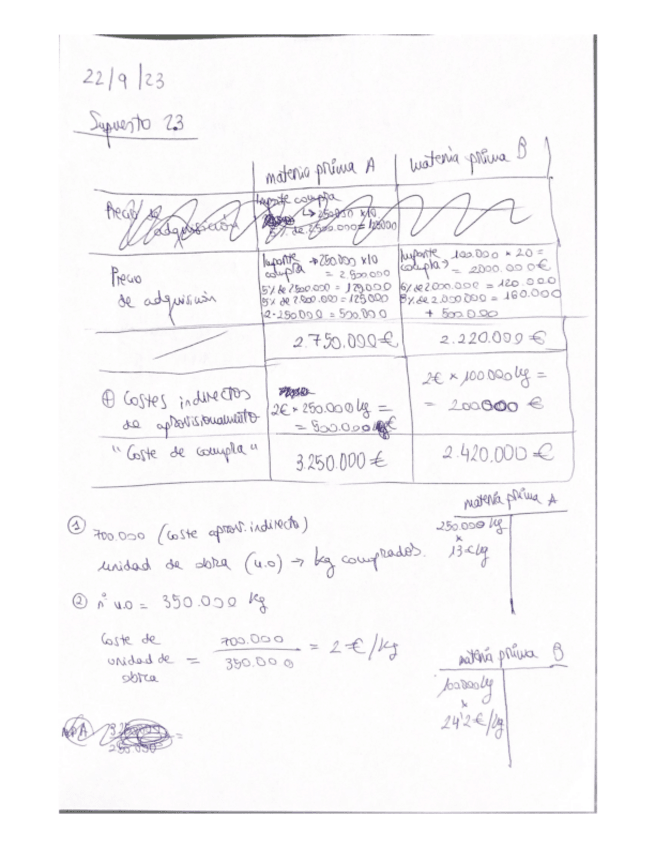 22/9/23
Supuesto 2.3
materia prima A
materia prima B
Precio de adquisición
Importe compra
↳ 250.000 x10
5% de 2.500.000 = 125000
Precio de adquisición
Importe compra → 250.000 x10 = 2500000
5% de 2500.000 = 125.000
5% de 2.500.000 = 125.000
Importe compra → 100.000 x 20 = 2000.000€
6% de 2.000.000 = 120.000
5% de 2.000.000 = 100.000
2.750.000€
2.220.000€
⊕ Costes indirectos de aprovisionamiento
2€ x 250.000 kg =
= 500.000 €
2€ x 100.000 kg =
= 200000 €
"Coste de compra"
3.250.000€
2.420.000€
① 700.000 (coste aprov. indirecto)
unidad de obra (u.o) → kg comprados.
② nº u.o = 350.000 kg
Coste de unidad de obra = 700.000 / 350.000 = 2€/kg
materia prima A
250.000 kg
x
13€/kg
materia prima B
100.000 kg
x
24'2€/kg
250.000 =